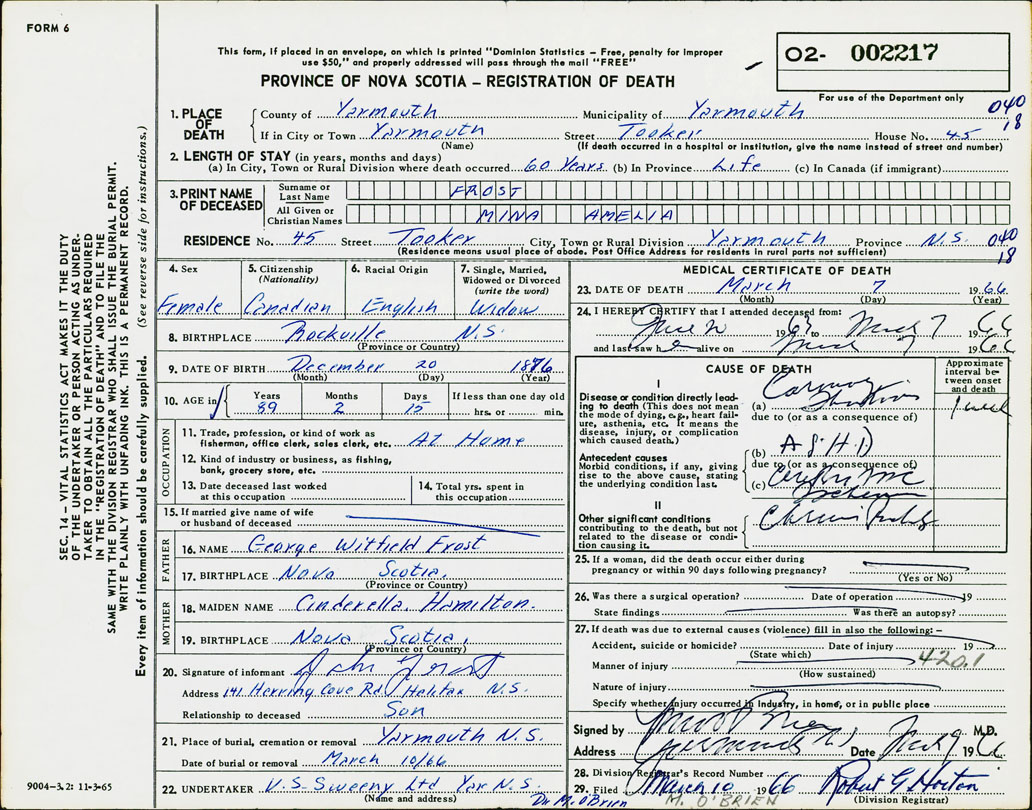 FORM 6
This form, if placed in an envelope, on which is printed "Dominion Statistics – Free, penalty for improper
use $50," and properly addressed will pass through the mail "FREE"
PROVINCE OF NOVA SCOTIA – REGISTRATION OF DEATH
O2- 002217
For use of the Department only
040
18
1. PLACE OF DEATH
County of Yarmouth Municipality of Yarmouth
If in City or Town Yarmouth Street Tooker House No. 45
(Name) (If death occurred in a hospital or institution, give the name instead of street and number)
2. LENGTH OF STAY (in years, months and days)
(a) In City, Town or Rural Division where death occurred 60 Years (b) In Province Life (c) In Canada (if immigrant)
3. PRINT NAME OF DECEASED
Surname or Last Name FROST
All Given or Christian Names MINA AMELIA
RESIDENCE No. 45 Street Tooker City, Town or Rural Division Yarmouth Province N.S. 040
(Residence means usual place of abode. Post Office Address for residents in rural parts not sufficient) 18
4. Sex
Female
5. Citizenship
(Nationality)
Canadian
6. Racial Origin
English
7. Single, Married,
Widowed or Divorced
(write the word)
Widow
8. BIRTHPLACE Rockville N.S.
(Province or Country)
9. DATE OF BIRTH December 20 1876
(Month) (Day) (Year)
10. AGE in
Years Months Days If less than one day old
89 2 15 hrs. or min.
OCCUPATION
11. Trade, profession, or kind of work as
fisherman, office clerk, sales clerk, etc. At Home
12. Kind of industry or business, as fishing,
bank, grocery store, etc.
13. Date deceased last worked
at this occupation
14. Total yrs. spent in
this occupation
15. If married give name of wife
or husband of deceased
FATHER
16. NAME George Witfield Frost
17. BIRTHPLACE Nova Scotia
(Province or Country)
MOTHER
18. MAIDEN NAME Cinderella Hamilton.
19. BIRTHPLACE Nova Scotia,
(Province or Country)
20. Signature of informant John Frost
Address 141 Herring Cove Rd, Halifax N.S.
Relationship to deceased Son
21. Place of burial, cremation or removal Yarmouth N.S.
Date of burial or removal March 10/66
22. UNDERTAKER V.S. Sweeny Ltd Yar N.S.
(Name and address)
Dr M. O'Brien
MEDICAL CERTIFICATE OF DEATH
23. DATE OF DEATH March 7 1966
(Month) (Day) (Year)
24. I HEREBY CERTIFY that I attended deceased from:
to March 7 1966
and last saw h alive on 1966
CAUSE OF DEATH
Approximate
interval be-
tween onset
and death
I
Disease or condition directly lead-
ing to death (This does not
mean the mode of dying, e.g., heart fail-
ure, asthenia, etc. It means the
disease, injury, or complication
which caused death.)
(a) Coronary
due to (or as a consequence of)
1 week
Antecedent causes
Morbid conditions, if any, giving
rise to the above cause, stating
the underlying condition last.
(b) ASHD
due to (or as a consequence of)
(c)
II
Other significant conditions
contributing to the death, but not
related to the disease or condi-
tion causing it.
25. If a woman, did the death occur either during
pregnancy or within 90 days following pregnancy?
(Yes or No)
26. Was there a surgical operation? Date of operation 19
State findings Was there an autopsy?
27. If death was due to external causes (violence) fill in also the following: –
Accident, suicide or homicide? Date of injury 19
(State which)
420.1
Manner of injury
(How sustained)
Nature of injury
Specify whether injury occurred in industry, in home, or in public place
Signed by M.D.
Address Date 1966
28. Division Registrar's Record Number
29. Filed March 10 1966 Robert G Horton
M. O'BRIEN (Division Registrar)
SEC. 14 – VITAL STATISTICS ACT MAKES IT THE DUTY
OF THE UNDERTAKER OR PERSON ACTING AS UNDER-
TAKER "TO OBTAIN ALL THE PARTICULARS REQUIRED
IN THE "REGISTRATION OF DEATH" AND TO FILE THE
SAME WITH THE DIVISION REGISTRAR WHO SHALL ISSUE THE BURIAL PERMIT.
WRITE PLAINLY WITH UNFADING INK. THIS IS A PERMANENT RECORD.
Every item of information should be carefully supplied. (See reverse side for instructions.)
9004-3.2: 11-3-65